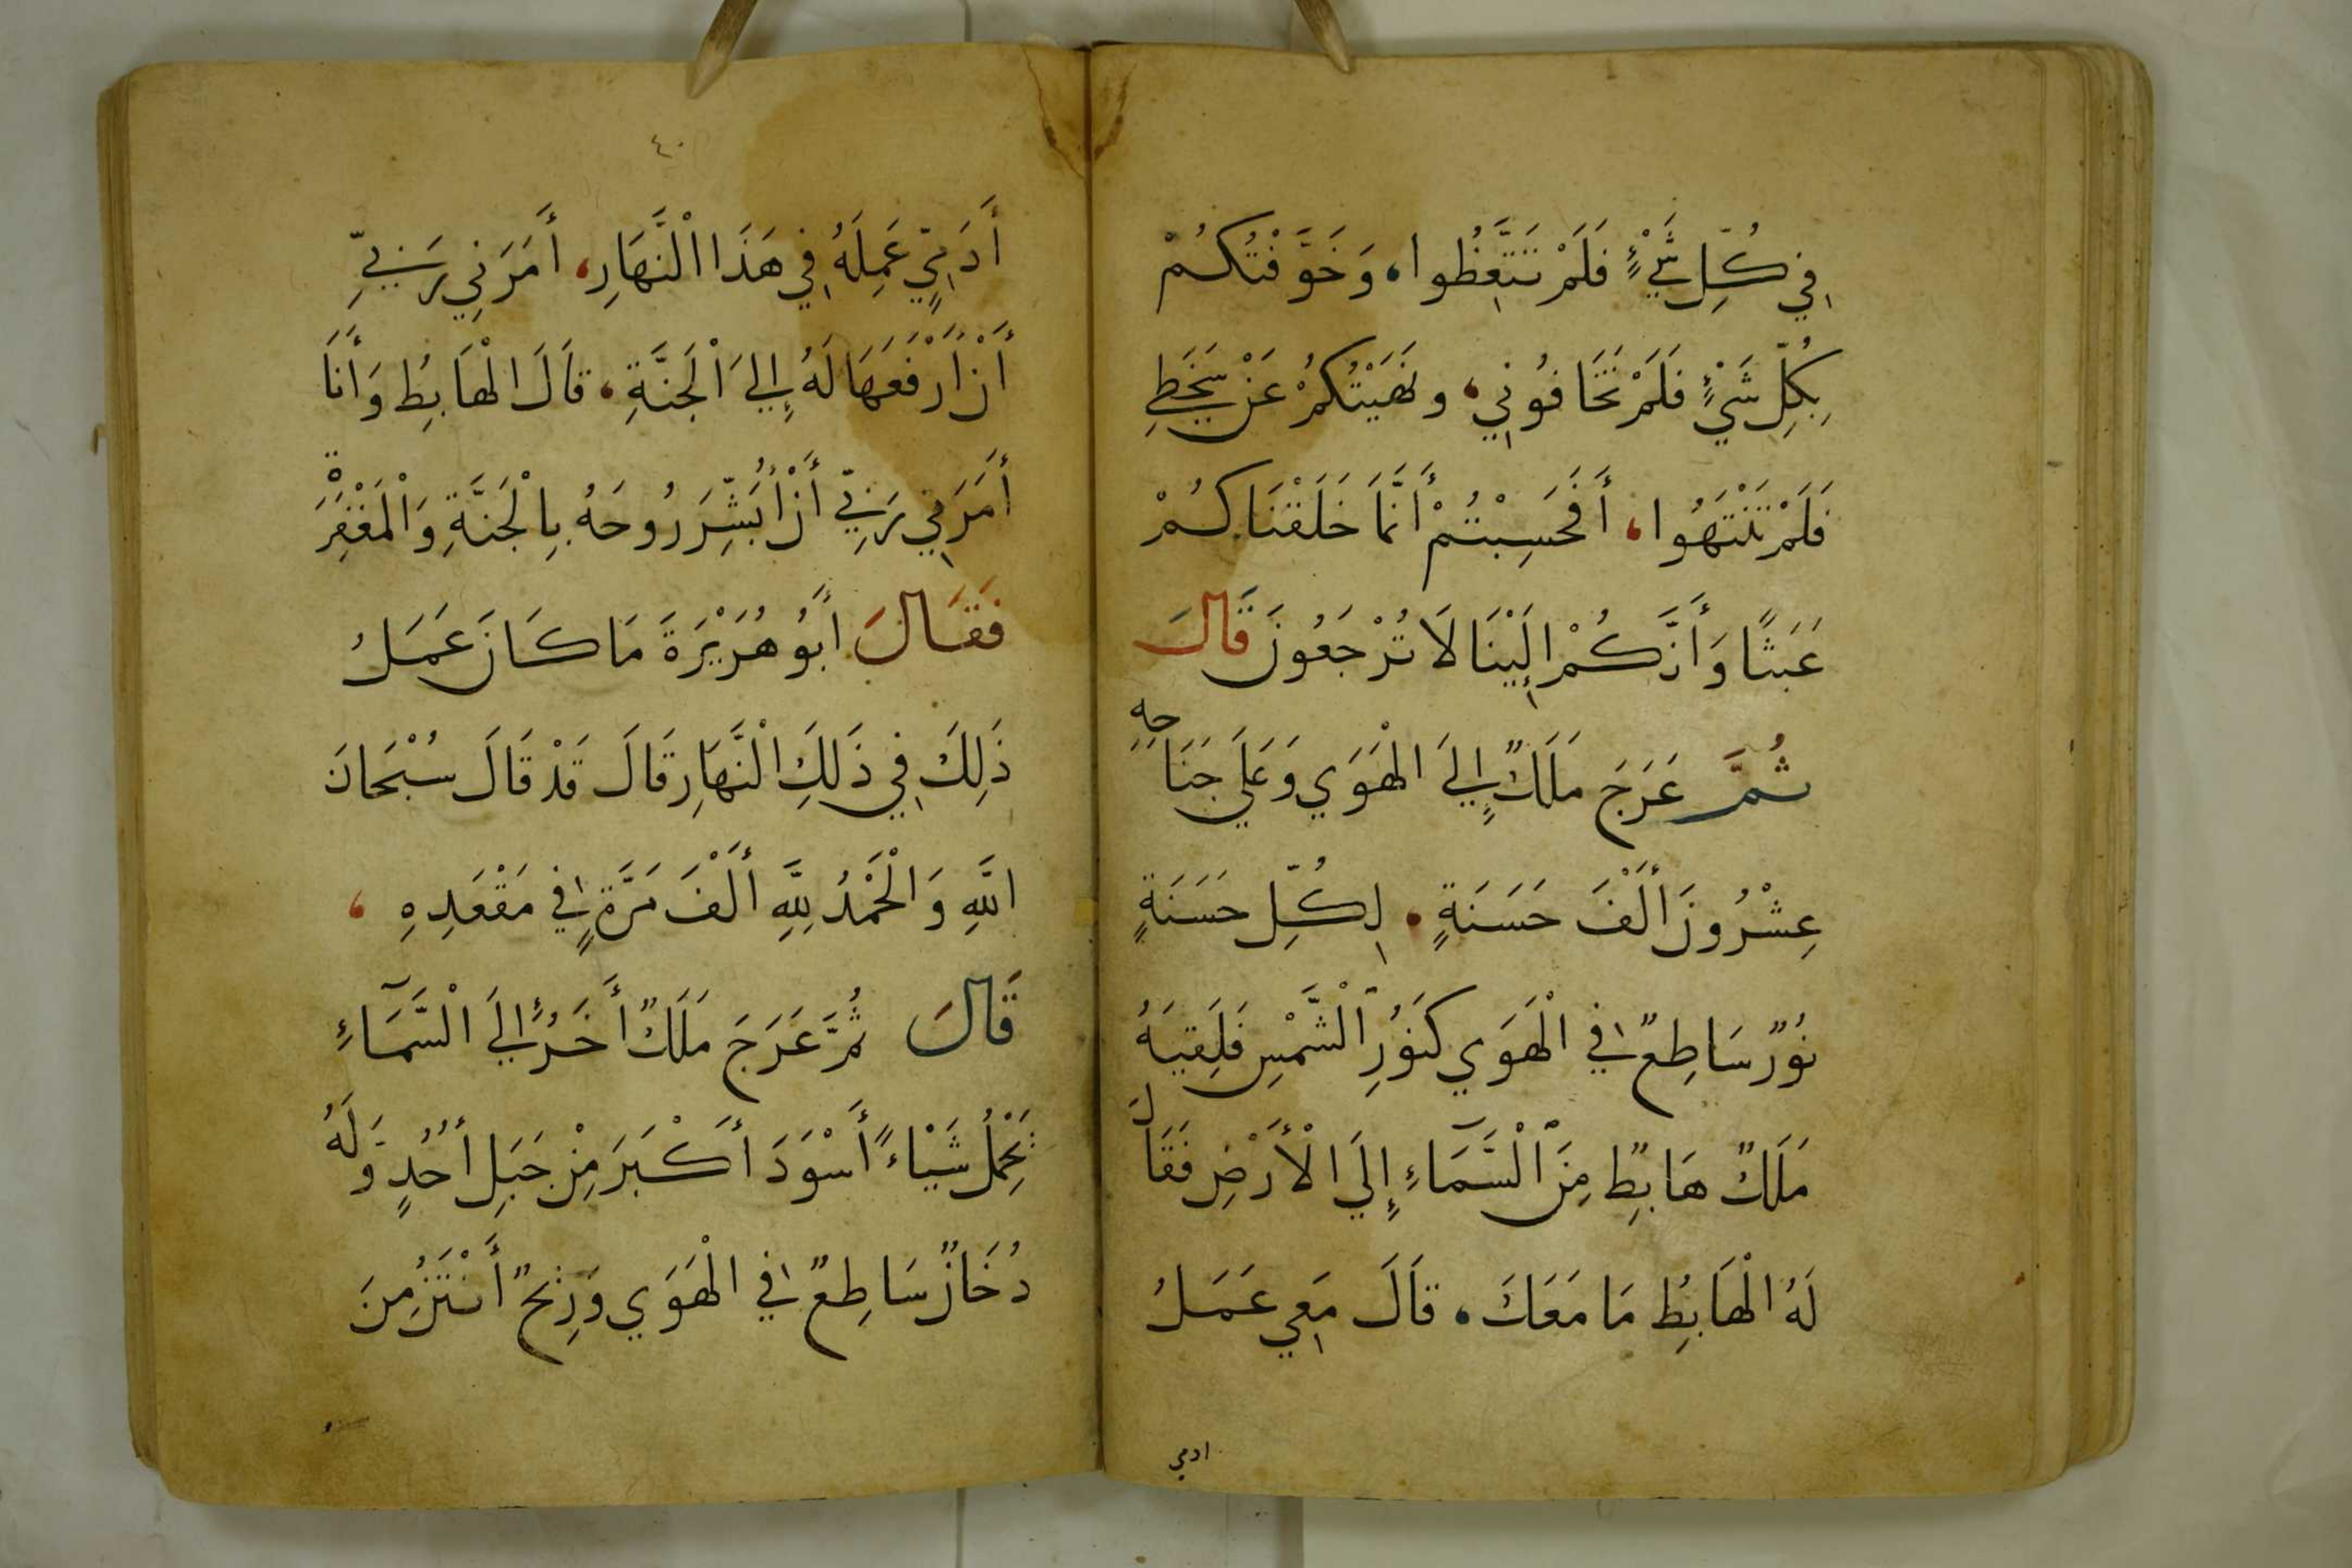 فِي كُلِّ شَيْءٍ فَلَمْ تَتَّعِظُوا، وَخَوَّفْتُكُمْ
بِكُلِّ شَيْءٍ فَلَمْ تَخَافُونِي، ونَهَيْتُكُمْ عَنْ سَخَطِي
فَلَمْ تَنْتَهُوا، أَفَحَسِبْتُمْ أَنَّمَا خَلَقْنَاكُمْ
عَبَثًا وَأَنَّكُمْ إِلَيْنَا لَا تُرْجَعُونَ قَالَ
ثُمَّ عَرَجَ مَلَكٌ إِلَي الْهَوَي وَعَلَي جَنَاحِهِ
عِشْرُونَ أَلْفَ حَسَنَةٍ. لِكُلِّ حَسَنَةٍ
نُورٌ سَاطِعٌ فِي الْهَوَي كَنُورِ الْشَّمْسِ فَلَقِيَهُ
مَلَكٌ هَابِطٌ مِنَ الْسَّمَآءِ إِلَي الْأَرْضِ فَقَالَ
لَهُ الْهَابِطُ مَا مَعَكَ. قَالَ مَعِي عَمَلُ
ادمي
٤٠
أَدَمِيٍّ عَمِلَهُ فِي هَذَا الْنَّهَارِ، أَمَرَنِي رَبِّي
أَنْ أَرْفَعَهَا لَهُ إِلَي الْجَنَّةِ، قَالَ الْهَابِطُ وَأَنَا
أَمَرَنِي رَبِّي أَنْ أُبَشِّرَ رُوحَهُ بِالْجَنَّةِ وَالْمَغْفِرَةِ
فَقَالَ أَبُو هُرَيْرَةَ مَا كَانَ عَمَلُ
ذَلِكَ فِي ذَلِكَ الْنَّهَارِ قَالَ قَدْ قَالَ سُبْحَانَ
اللَّهِ وَالْحَمْدُ لِلَّهِ أَلْفَ مَرَّةٍ فِي مَقْعَدِهِ،
قَالَ ثُمَّ عَرَجَ مَلَكٌ أَخَرُ إِلَي الْسَّمَآءِ
يَحْمِلُ شَيْاءً أَسْوَدَ أَكْبَرَ مِنْ جَبَلِ أُحُدٍ وَلَهُ
دُخَانٌ سَاطِعٌ فِي الْهَوَي وَرِيحٌ أَنْتَنُ مِنَ